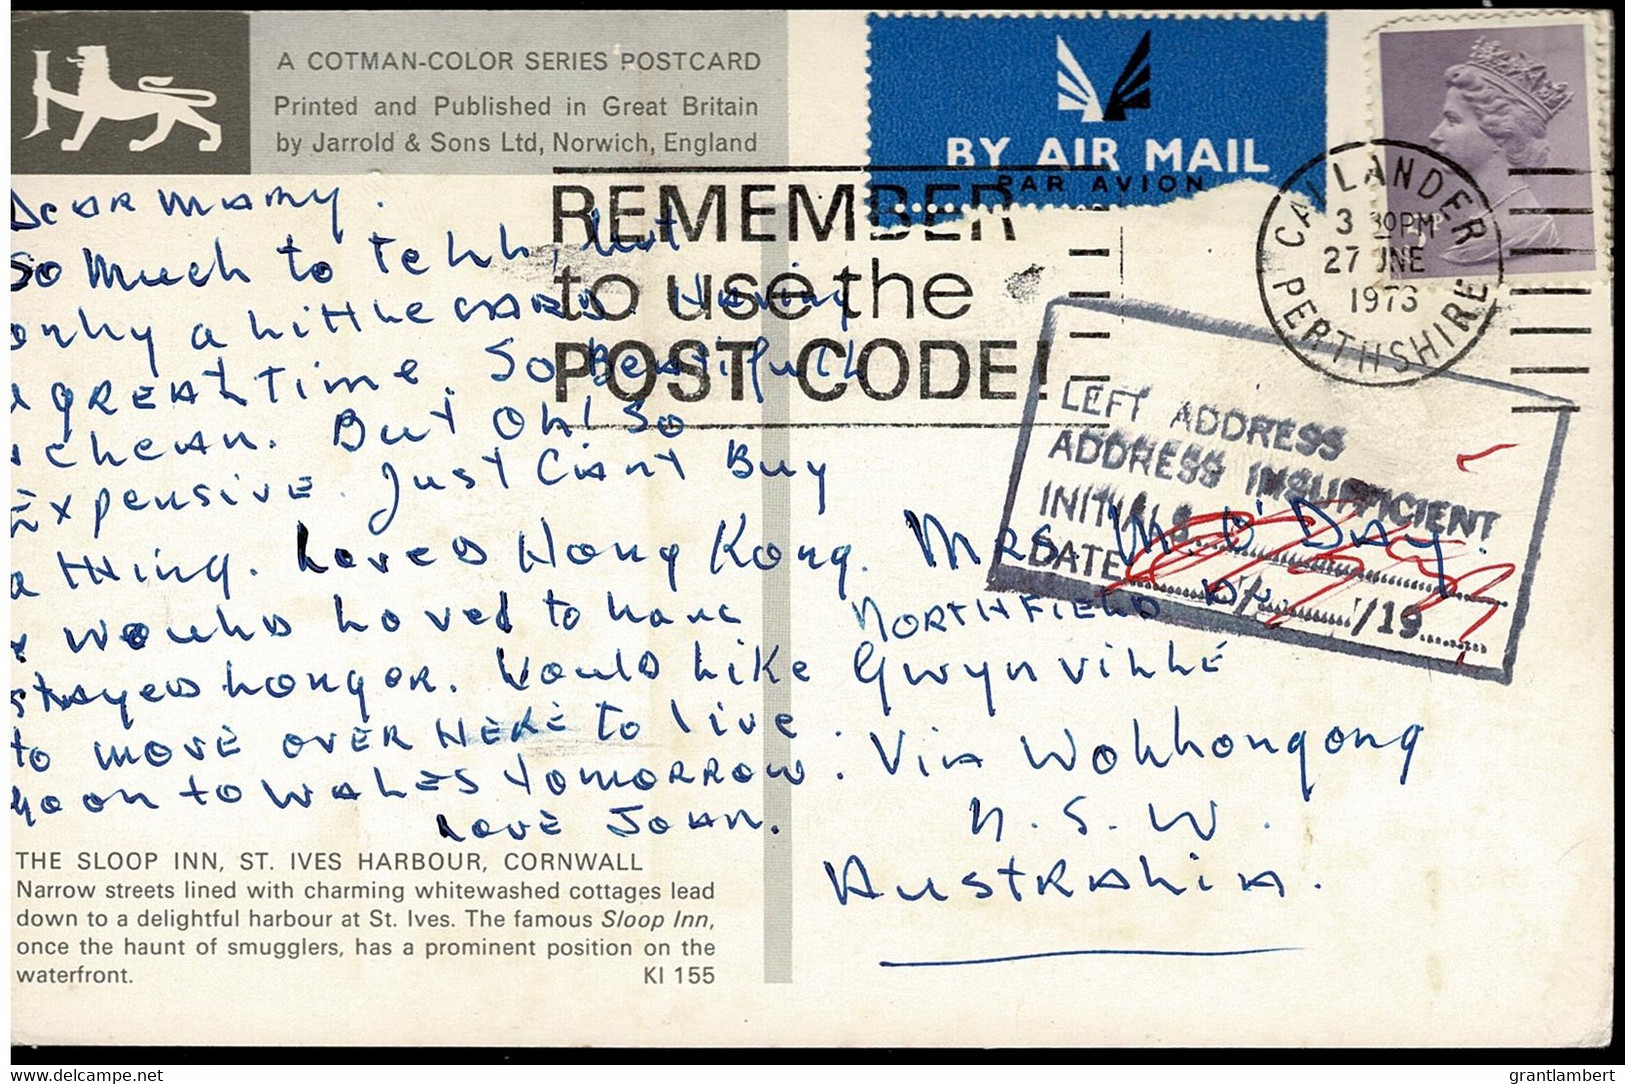 A COTMAN-COLOR SERIES POSTCARD
Printed and Published in Great Britain
by Jarrold & Sons Ltd, Norwich, England
BY AIR MAIL
PAR AVION
CALLANDER
3 30PM
27 JNE
1973
PERTHSHIRE
REMEMBER
to use the
POST CODE!
Dear Mamy.
So Much to tell, but
only a little card. Having
a great time. So Beautifull
& clean. But Oh! So
Expensive. Just Can't Buy
a thing. Loved Hong Kong.
& would loved to have
stayed longer. Would Like
to move over here to live.
on to Wales tomorrow.
Love Joan.
LEFT ADDRESS
ADDRESS INSUFFICIENT
INITIALS
DATE / /19
Mrs M. O'Day.
Northfield
Gwynville
Via Wollongong
N.S.W.
Australia.
THE SLOOP INN, ST. IVES HARBOUR, CORNWALL
Narrow streets lined with charming whitewashed cottages lead
down to a delightful harbour at St. Ives. The famous Sloop Inn,
once the haunt of smugglers, has a prominent position on the
waterfront. KI 155
delcampe.net
grantlambert